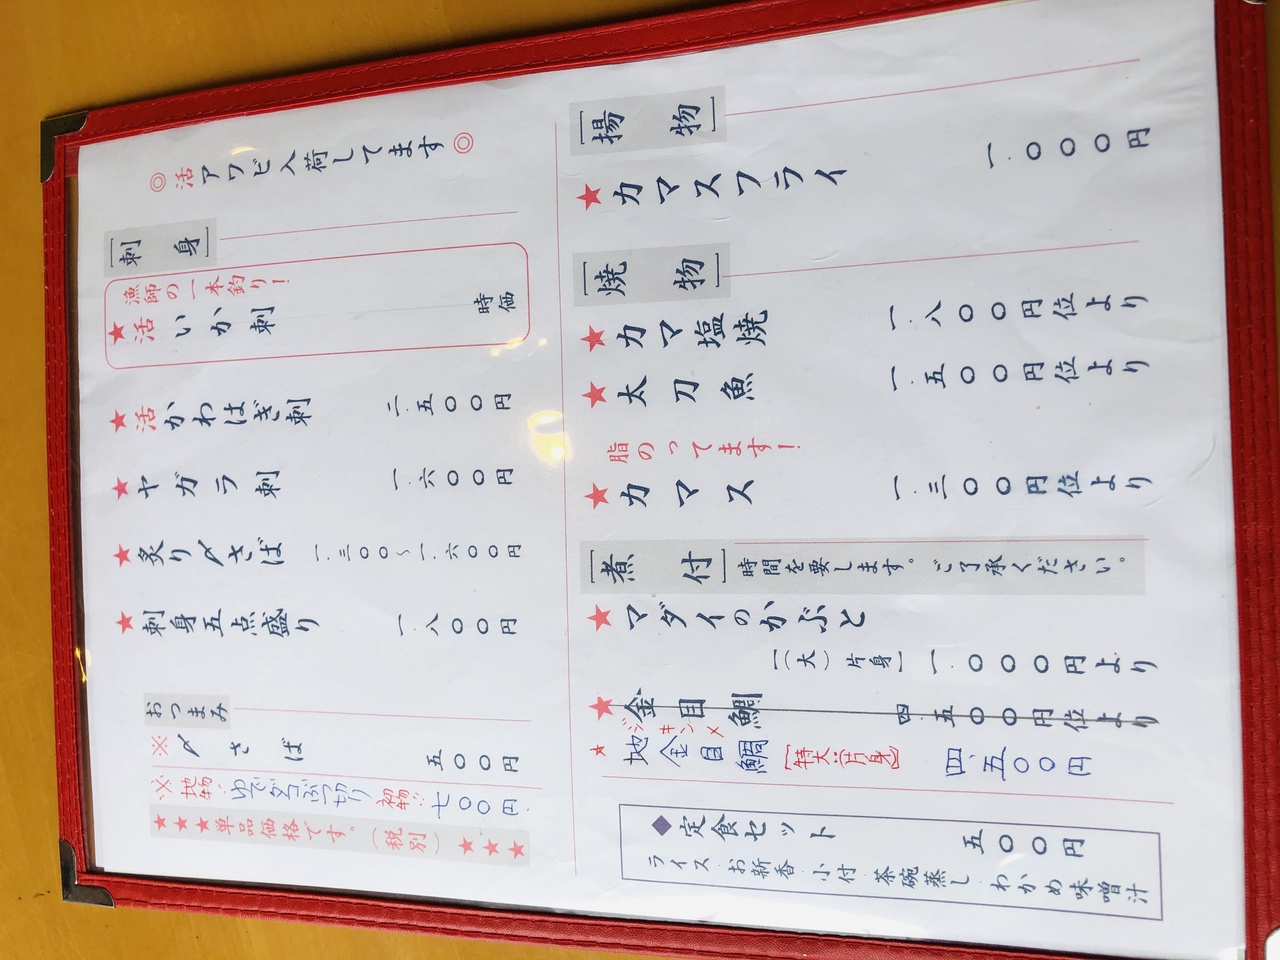 ◎活アワビ入荷してます◎
[刺身]
漁師の一本釣り!
★活いか刺 時価
★活かわはぎ刺 二.五〇〇円
★ヤガラ刺 一.六〇〇円
★炙り〆さば 一.三〇〇~一.六〇〇円
★刺身五点盛り 一.八〇〇円
おつまみ
※〆さば 五〇〇円
※地物:ゆでダコぶつ切り 初物!! 七〇〇円.
★★★単品価格です。(税別)★★★
[揚物]
★カマスフライ 一.〇〇〇円
[焼物]
★カマ塩焼 一.八〇〇円位より
★太刀魚 一.五〇〇円位より
脂のってます!
★カマス 一.三〇〇円位より
[煮付]時間を要します。ご了承ください。
★マダイのかぶと
[(大)片身] 一.〇〇〇円より
★金目鯛 四.五〇〇円位より
ジキンメ
★地金目鯛[特大:片身] 四.五〇〇円
◆定食セット 五〇〇円
ライス・お新香・小付・茶碗蒸し・わかめ味噌汁